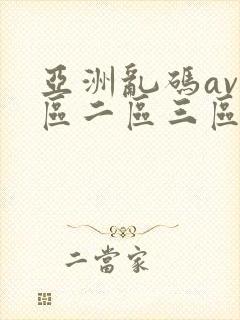 亞洲亂碼av
區二區三區
二當家